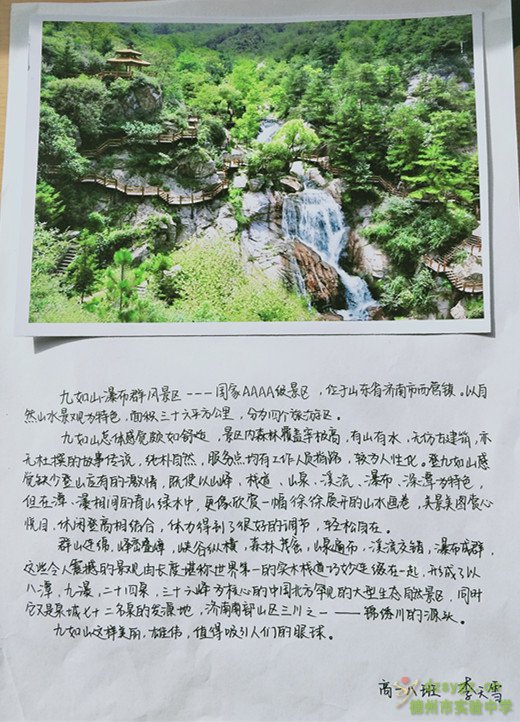 九如山瀑布群风景区---国家AAAA级景区，位于山东省济南市西营镇。以自
然山水景观为特色，面积三十六平方公里，分为四个旅游区。
九如山总体感觉颇如舒适，景区内森林覆盖率极高，有山有水，无仿古建筑，亦
无杜撰的故事传说，纯朴自然，服务点均有工作人员指路，较为人性化。登九如山感
觉缺少登山应有的激情，既使以山峰、栈道、山泉、溪流、瀑布、深潭为特色，
但在潭、瀑相间的青山绿水中，更像欣赏一幅徐徐展开的山水画卷，美景美图赏心
悦目，休闲登高相结合，体力得到了很好的调节，轻松自在。
群山连绵，峰峦叠嶂，峡谷纵横，森林茂密，山泉遍布，溪流交错，瀑布成群，
这些令人震撼的景观由长度堪称世界第一的实木栈道巧妙连缀在一起，形成了以
八潭，九瀑，二十四泉，三十六峰为核心的中国北方罕见的大型生态自然景区，同时
它又是泉城七十二名泉的发源地，济南南部山区三川之一——锦绣川的源头。
九如山这样美丽，雄伟，值得吸引人们的眼球。
高一八班 李天雪
德州市实验中学